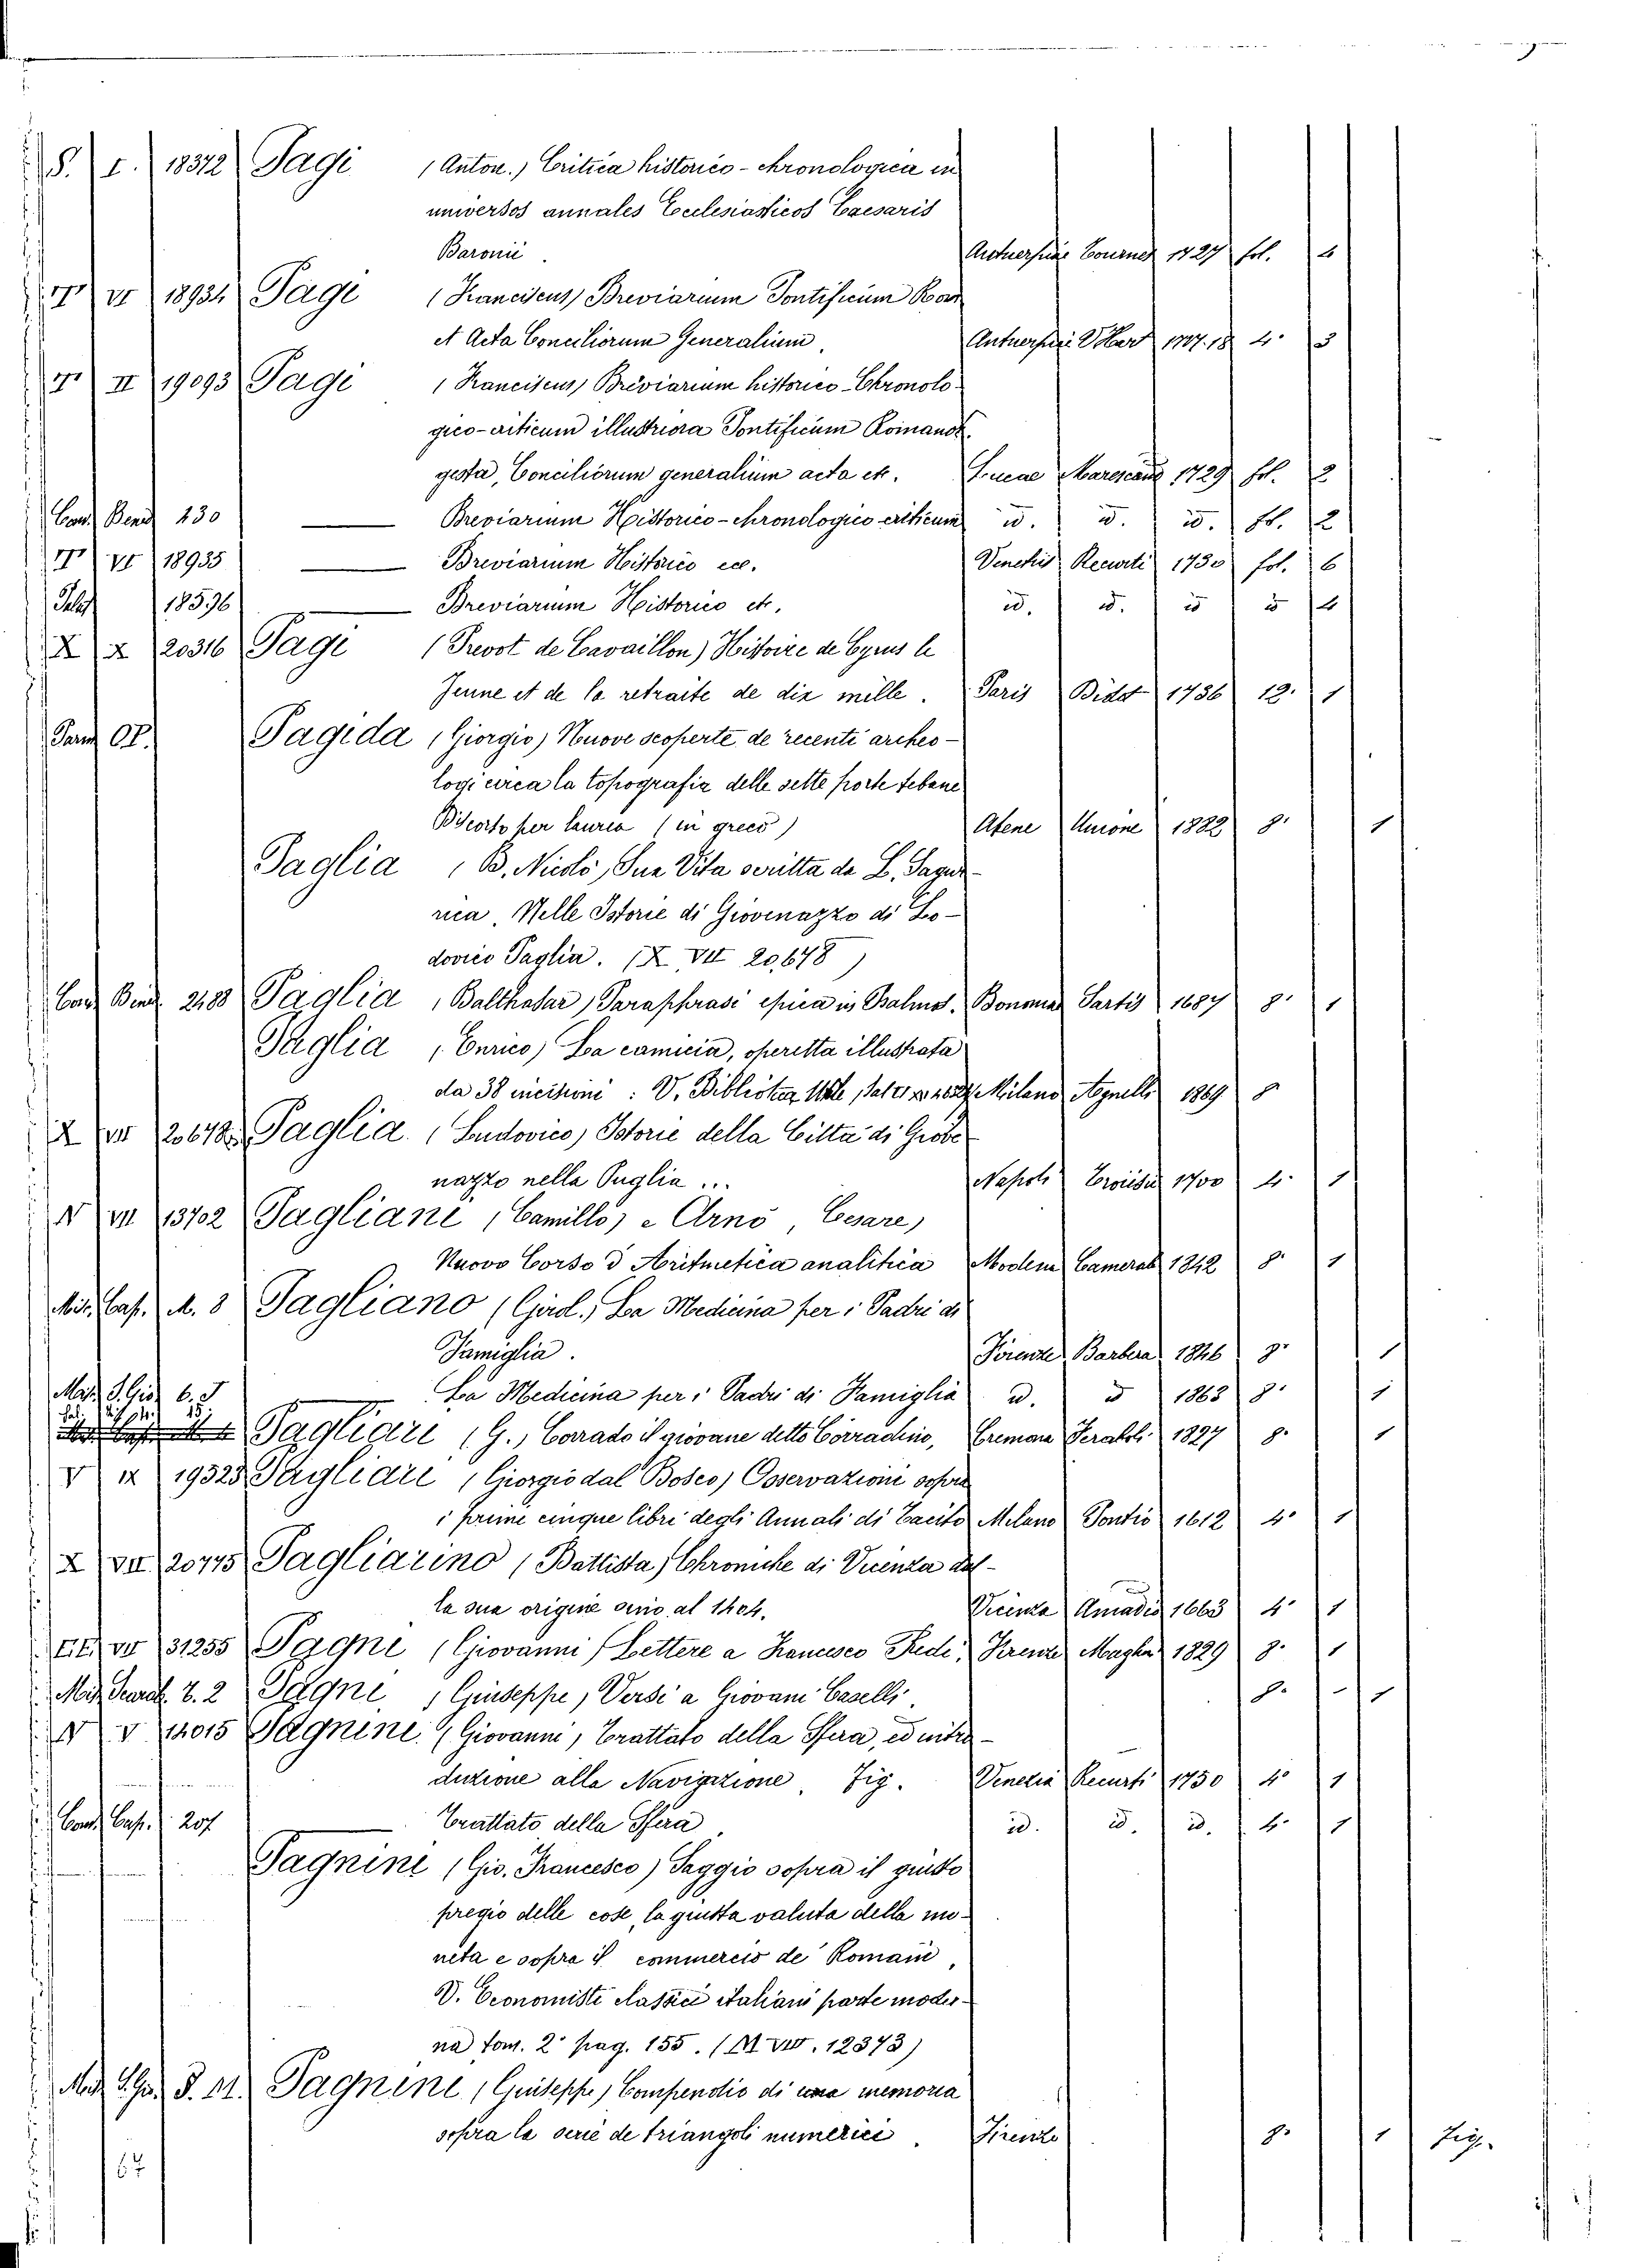 S. I. 18372 Pagi (Anton.) Critica historico-chronologica in
universos annales Ecclesiasticos Caesaris
Baronii. Antuerpiae Tournes 1727 fol. 4
T VI 18934 Pagi (Franciscus) Breviarium Pontificum Rom
et Acta Conciliorum Generalium. 1717.18 4° 3
T II 19093 Pagi (Franciscus) Breviarium historico-Chronolo-
gico-criticum illustriora Pontificum Romanor.
gesta, Conciliorum generalium acta etc. Lucae 1729 fol. 2
Cam. Bend 230 —— Breviarium Historico-chronologico criticum id. id. id. fol. 2
T VI 18935 —— Breviarium Historico ecc. Venetiis Recurti 1730 fol. 6
18596 —— Breviarium Historico etc. id. id. id id 4
X X 20316 Pagi (Prevot de Cavaillon) Histoire de Cyrus le
Jenne et de la retraite de dix mille. Paris Didot 1736 12. 1
Pam OP. Pagida (Giorgio) Nuove scoperte de recenti archeo-
logi circa la topografia delle sette porte tebane
Discorso per laurea (in greco) Atene Unione 1882 8° 1
Paglia (B. Nicolò) Sua Vita scritta da L.
Nelle Istorie di Giovenazzo di Lo-
dovico Paglia. (X VII 20,678)
2488 Paglia (Balthasar) Paraphrasi epica in Psalmos. Bononiae Sartis 1687 8° 1
Paglia (Enrico) La camicia, operetta illustrata
da 38 incisioni: V. Biblioteca Utile Milano Agnelli 1869 8
X VII 20678 Paglia (Ludovico) Istorie della Città di Giove
nazzo nella Puglia ... Napoli 1700 4. 1
N VII 13702 Pagliani (Camillo) e Arnò (Cesare)
Nuovo Corso d'Aritmetica analitica Modena Camerale 1842 8° 1
Mis. Cap. M. 8 Pagliano (Girol.) La Medicina per i Padri di
Famiglia. Firenze Barbera 1846 8° 1
6. La Medicina per i Padri di Famiglia id. id 1863 8° 1
Pagliari (G.) Corrado il giovane detto Corradino, Cremona 1827 8. 1
V IX 19523 Pagliari (Giorgio dal Bosco) Osservazioni sopra
i primi cinque libri degli Annali di Tacito Milano Pontio 1612 4° 1
X VII 20775 Pagliarino (Battista) Chroniche di Vicenza dal-
la sua origine sino al 1404. Vicenza Amadio 1663 4° 1
EE VI 31255 Pagni (Giovanni) Lettere a Francesco Redi, Firenze Magheri 1829 8. 1
2 Pagni (Giuseppe) Versi a Giovani Caselli. 8. 1
N V 14015 Pagnini (Giovanni) Trattato della Sfera, ed intro-
duzione alla Navigazione. Fig. Venezia Recurti 1750 4° 1
Cand. Cap. 207 —— Trattato della Sfera id. id. id. 4. 1
Pagnini (Gio. Francesco) Saggio sopra il giusto
pregio delle cose, la giusta valuta della mo-
neta e sopra il commercio de Romani,
V. Economisti classici italiani parte moder-
na tom. 2° pag. 155. (M VII. 12373)
Pagnini (Giuseppe) Compendio di una memoria
sopra la serie de triangoli numerici. Firenze 8° 1 Fig.
67